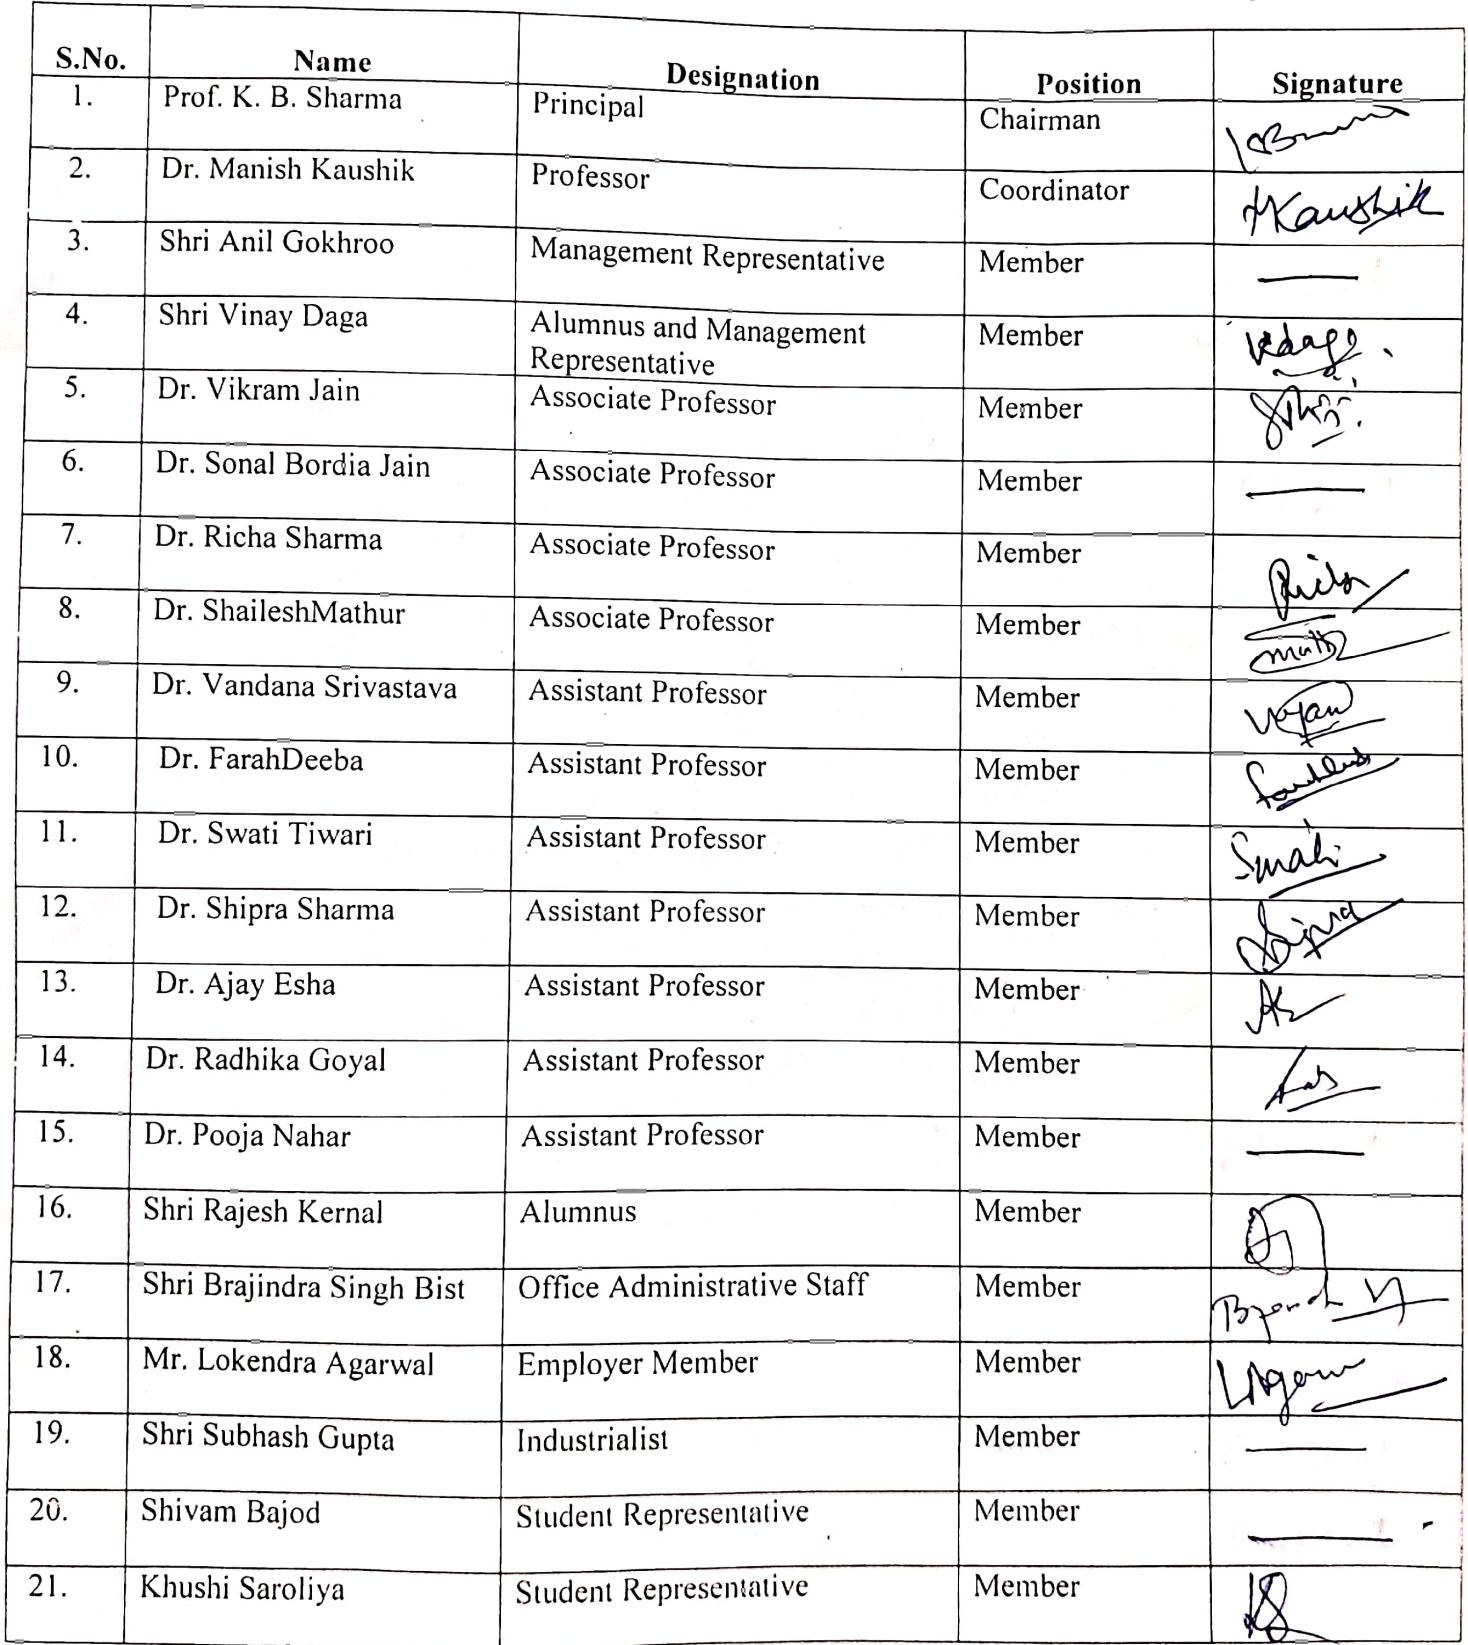 S.No. Name Designation Position Signature
1. Prof. K. B. Sharma Principal Chairman
2. Dr. Manish Kaushik Professor Coordinator Kaushik
3. Shri Anil Gokhroo Management Representative Member —
4. Shri Vinay Daga Alumnus and Management Member
Representative
5. Dr. Vikram Jain Associate Professor Member
6. Dr. Sonal Bordia Jain Associate Professor Member —
7. Dr. Richa Sharma Associate Professor Member
8. Dr. ShaileshMathur Associate Professor Member
9. Dr. Vandana Srivastava Assistant Professor Member
10. Dr. FarahDeeba Assistant Professor Member
11. Dr. Swati Tiwari Assistant Professor Member Swati
12. Dr. Shipra Sharma Assistant Professor Member
13. Dr. Ajay Esha Assistant Professor Member
14. Dr. Radhika Goyal Assistant Professor Member
15. Dr. Pooja Nahar Assistant Professor Member —
16. Shri Rajesh Kernal Alumnus Member
17. Shri Brajindra Singh Bist Office Administrative Staff Member
18. Mr. Lokendra Agarwal Employer Member Member
19. Shri Subhash Gupta Industrialist Member —
20. Shivam Bajod Student Representative Member —
21. Khushi Saroliya Student Representative Member